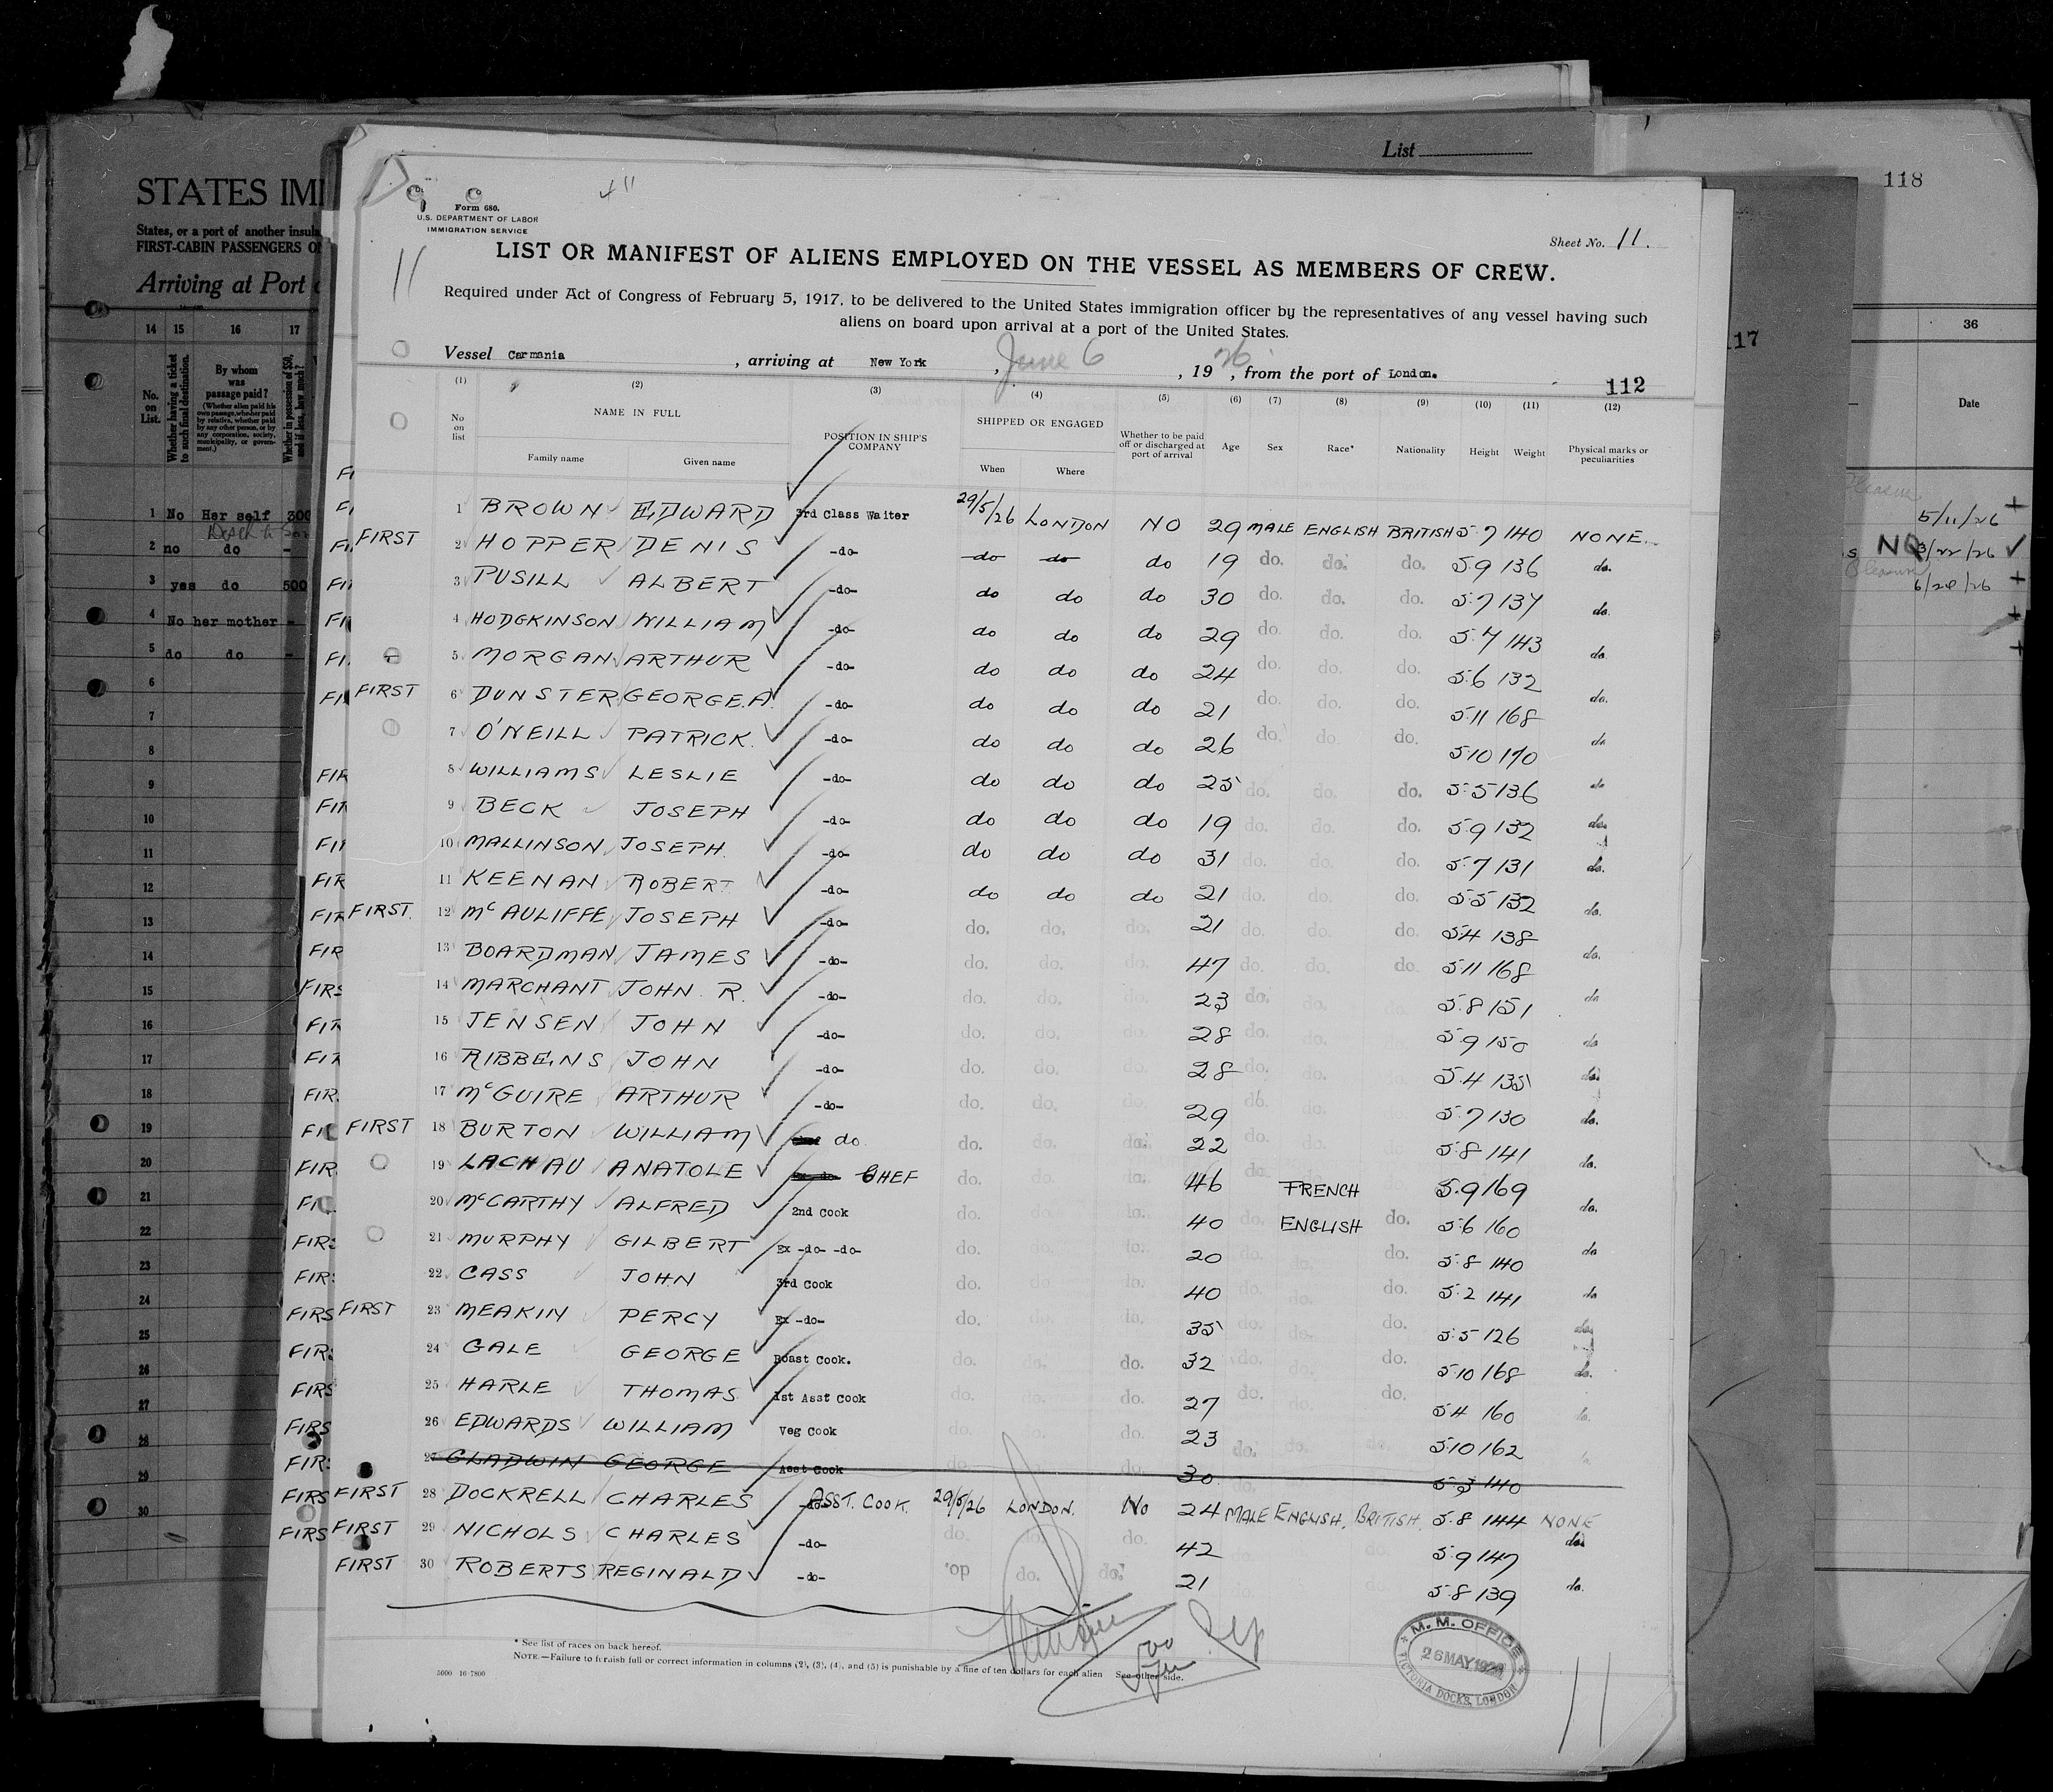 List
118
STATES IMM
States, or a port of another insula
FIRST-CABIN PASSENGERS O
Arriving at Port
14 15 16 17
No. on List.
Whether having a ticket to such final destination.
By whom was passage paid?
(Whether alien paid his own passage, whether paid by relative, whether paid by any other person, or by any corporation, society, municipality, or government.)
Whether in possession of $50, and if less, how much?
1 No Her self 300
2 no do -
3 yes do 500
4 No her mother -
5 do do -
6
7
8
9
10
11
12
13
14
15
16
17
18
19
20
21
22
23
24
25
26
27
28
29
30
17
36
Date
5/11/26 +
NO 3/22/26 ✓
Pleasure
6/28/26 +
Form 680.
U.S. DEPARTMENT OF LABOR
IMMIGRATION SERVICE
Sheet No. 11.
11
LIST OR MANIFEST OF ALIENS EMPLOYED ON THE VESSEL AS MEMBERS OF CREW.
Required under Act of Congress of February 5, 1917, to be delivered to the United States immigration officer by the representatives of any vessel having such
aliens on board upon arrival at a port of the United States.
Vessel Carmania , arriving at New York , June 6 , 19 26 , from the port of London.
112
(1) (2) (3) (4) (5) (6) (7) (8) (9) (10) (11) (12)
No on list
NAME IN FULL
Family name Given name
POSITION IN SHIP'S COMPANY
SHIPPED OR ENGAGED
When Where
Whether to be paid off or discharged at port of arrival
Age Sex Race* Nationality Height Weight Physical marks or peculiarities
1 BROWN EDWARD 3rd Class Waiter 29/5/26 LONDON NO 29 MALE ENGLISH BRITISH 5.7 140 NONE.
FIRST 2 HOPPER DENIS -do- do do do 19 do. do. do. 5.9 136 do.
3 PUSILL ALBERT -do- do do do 30 do. do. do. 5.7 137 do.
4 HODGKINSON WILLIAM -do- do do do 29 do. do. do. 5.7 143 do.
5 MORGAN ARTHUR -do- do do do 24 do. do. do. 5.6 132 do.
FIRST 6 DUNSTER GEORGE.A. -do- do do do 21 do. do. do. 5.11 168 do
7 O'NEILL PATRICK. -do- do do do 26 do. do. do. 5.10 170 do
8 WILLIAMS LESLIE -do- do do do 25 do. do. do. 5.5 136 do.
9 BECK JOSEPH -do- do do do 19 do. do. do. 5.9 132 do.
10 MALLINSON JOSEPH. -do- do do do 31 do. do. do. 5.7 131 do.
11 KEENAN ROBERT -do- do do do 21 do. do. do. 5.5 132 do.
FIRST. 12 McAULIFFE JOSEPH -do- do. do. do. 21 do. do. do. 5.4 138 do.
13 BOARDMAN JAMES -do- do. do. do. 47 do. do. do. 5.11 168 do
14 MARCHANT JOHN R. -do- do. do. do. 23 do. do. do. 5.8 151 do
15 JENSEN JOHN -do- do. do. do. 28 do. do. do. 5.9 150 do.
16 RIBBENS JOHN -do- do. do. do. 28 do. do. do. 5.4 135 do.
17 McGUIRE ARTHUR -do- do. do. do. 29 do. do. do. 5.7 130 do.
FIRST 18 BURTON WILLIAM do. do. do. do. 22 do. do. do. 5.8 141 do.
19 LACHAU ANATOLE CHEF do. do. do. 46 do. FRENCH 5.9 169 do.
20 McCARTHY ALFRED 2nd Cook do. do. do. 40 do. ENGLISH do. 5.6 160 do
21 MURPHY GILBERT Ex -do- -do- do. do. do. 20 do. do. 5.8 140 do
22 CASS JOHN 3rd Cook do. do. do. 40 do. do. do. 5.2 141 do.
FIRST 23 MEAKIN PERCY Ex -do- do. do. do. 35 do. do. do. 5.5 126 do.
24 GALE GEORGE Roast Cook. do. do. do. 32 do. do. do. 5.10 168 do.
25 HARLE THOMAS. 1st Asst Cook do. do. do. 27 do. do. do. 5.4 160
26 EDWARDS WILLIAM Veg Cook do. do. do. 23 do. do. do. 5.10 162
27 GLADWIN GEORGE Asst Cook do. do. do. 30 5.3 140
FIRST 28 DOCKRELL CHARLES ASST. COOK. 29/5/26 LONDON. No 24 MALE ENGLISH. BRITISH. 5.8 144 NONE
FIRST 29 NICHOLS CHARLES -do- do. do. do. 42 do. 5.9 147 do.
FIRST 30 ROBERTS REGINALD -do- do. do. do. 21 do. 5.8 139 do.
* See list of races on back hereof.
NOTE.—Failure to furnish full or correct information in columns (2), (3), (4), and (5) is punishable by a fine of ten dollars for each alien See other side.
5000 16-7800
M. M. OFFICE
26 MAY 1926
VICTORIA DOCKS, LONDON
11